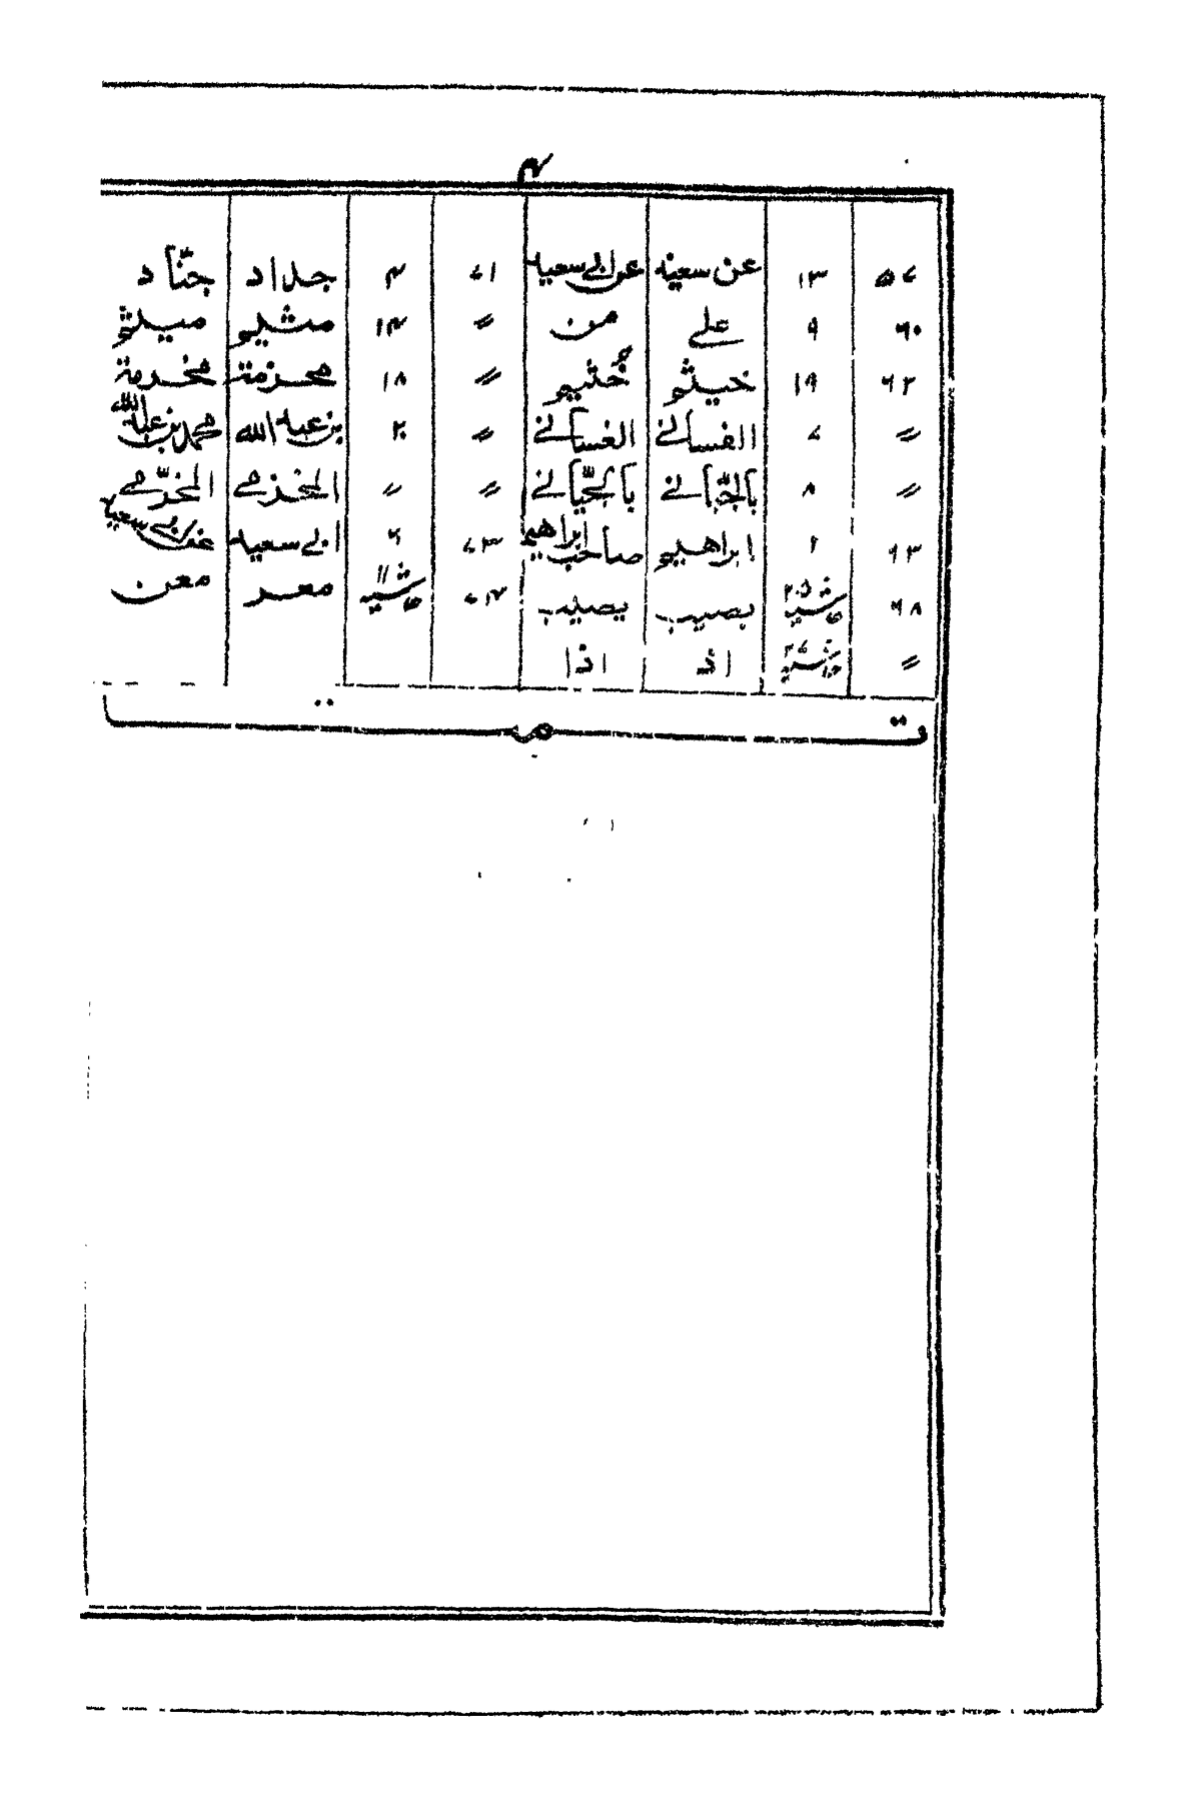 ۴
۵۷ ۱۳ عن سعيد عن ابي سعيد ۷۱ ۴ جداد جنّاد
۶۰ ۹ علے من 〃 ۱۴ مثليو ميثم
۶۲ ۱۹ خيثم خُثيم 〃 ۱۸ محزمة مخرمة
〃 ۷ الفسانے الغسانے 〃 ۲۰ بن عبد الله محمد بن عبد الله
〃 ۸ بالجبانے بالجيانے 〃 〃 المخزمے المخرّمے
۶۳ ۲ ابراهيم صاحب ابراهيم ۷۳ ۶ ابي سعيد عن ابي سعيد
۶۸ حاشيه ۲۰۵ بصيب يصيب ۷۴ حاشيه ۱۱ معر معن
〃 حاشيه اذ اذا
تمت